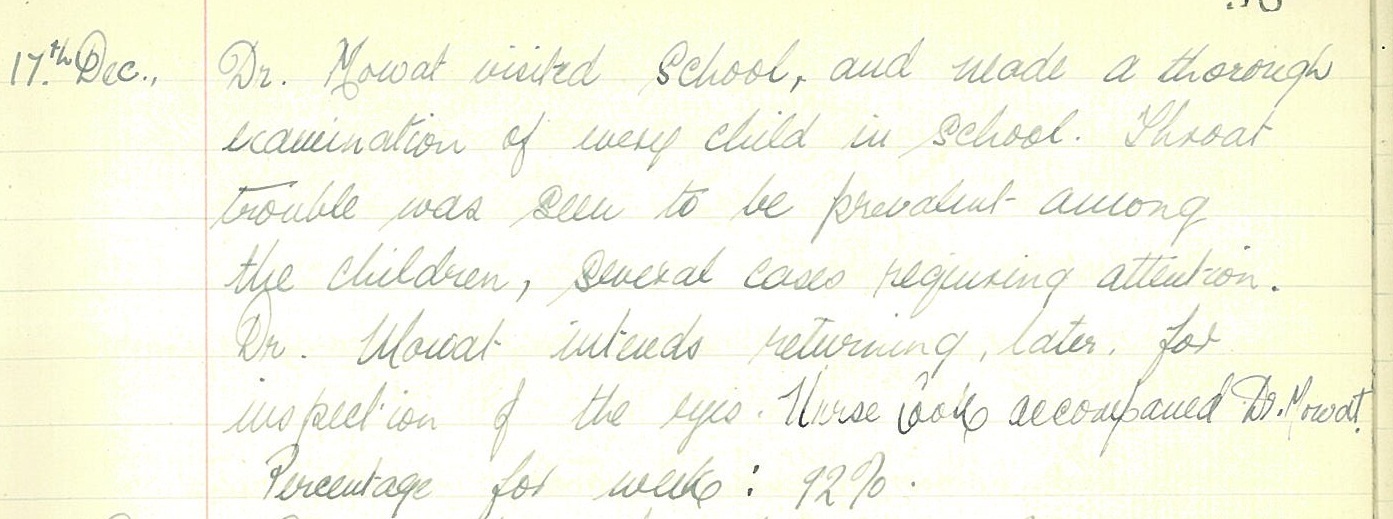 17.th Dec., Dr. Mowat visited School, and made a thorough
examination of every child in School. Throat
trouble was seen to be prevalent among
the children, several cases requiring attention.
Dr. Mowat intends returning, later, for
inspection of the eyes. Nurse Cook accompanied Dr. Mowat.
Percentage for week: 92%.